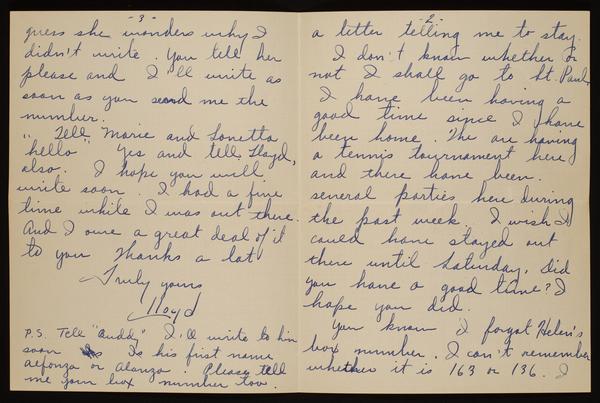 -2-
a letter telling me to stay.
I don't know whether or
not I shall go to St. Paul.
I have been having a
good time since I have
been home. We are having
a tennis tournament here
and there have been
several parties here during
the past week I wish I
could have stayed out
there until Saturday. Did
you have a good time? I
hope you did.
You know I forgot Helen's
box number. I can't remember
whether it is 163 or 136. I
-3-
guess she wonders why I
didn't write. You tell her
please and I'll write as
soon as you send me the
number.
"Tell Marie and Lonetta
hello" Yes and tell Lloyd,
also. I hope you will
write soon. I had a fine
time while I was out there.
And I owe a great deal of it
to you Thanks a lot
Truly yours
Lloyd
P.S. Tell "Buddy" I'll write to him
soon Is his first name
Alfonza or Alanzo. Please tell
me your box number too.